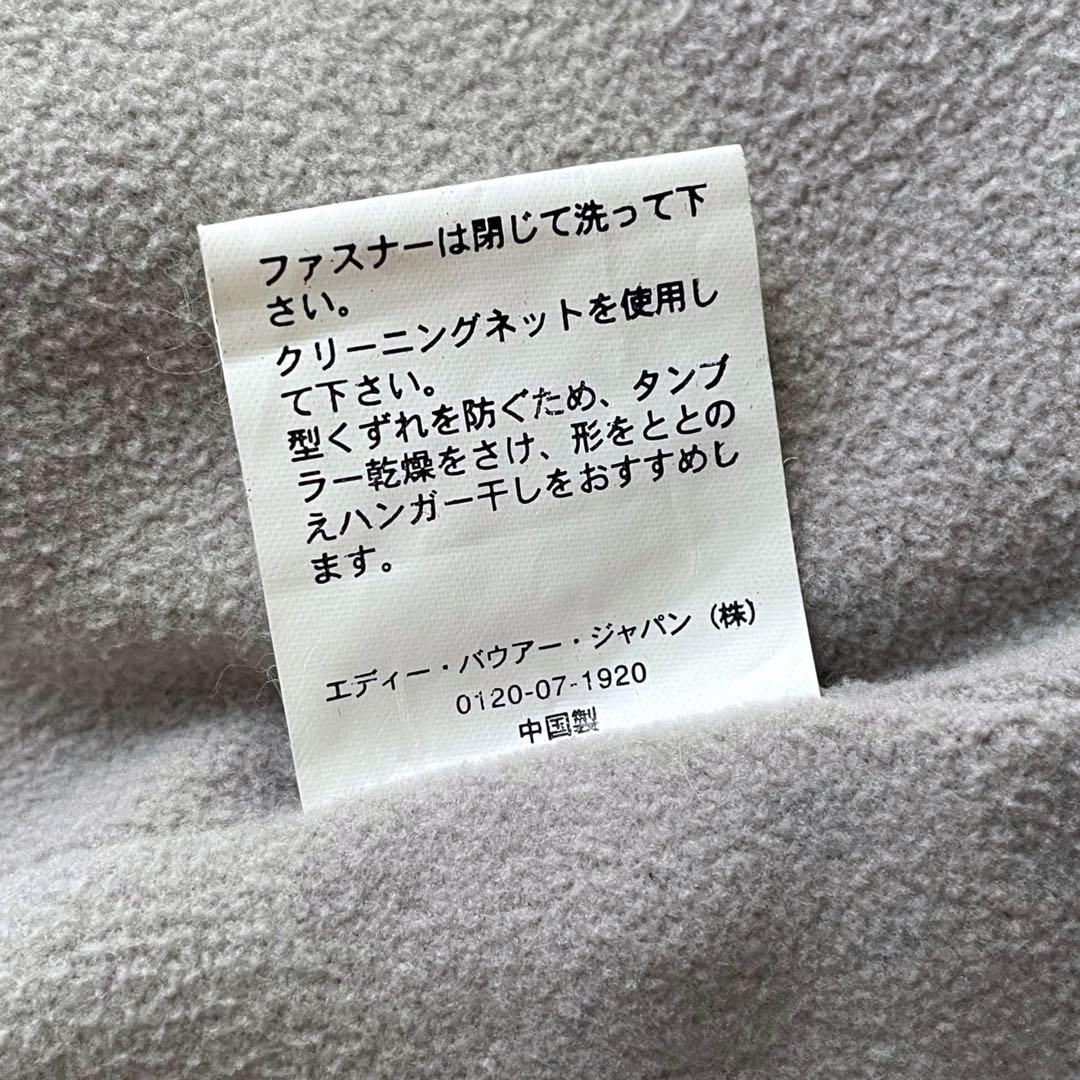 ファスナーは閉じて洗って下
さい。
クリーニングネットを使用し
て下さい。
型くずれを防ぐため、タンブ
ラー乾燥をさけ、形をととの
えハンガー干しをおすすめし
ます。
エディー・バウアー・ジャパン（株）
0120-07-1920
中国製